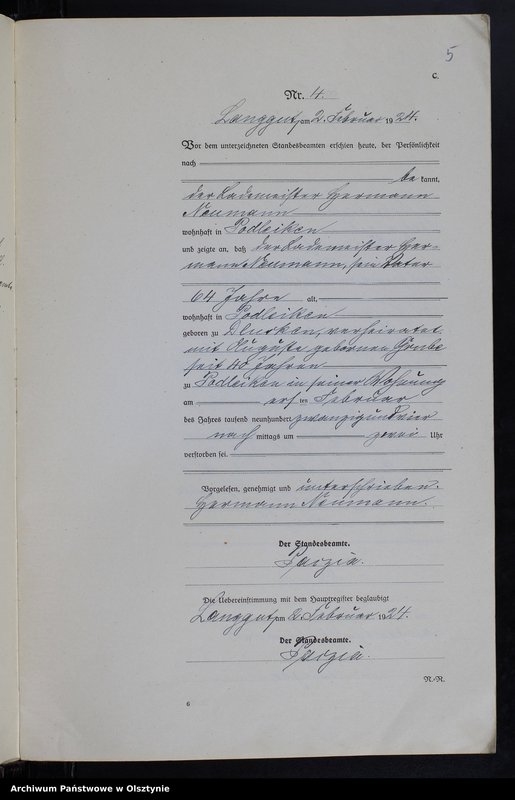 5
C.
Nr. 4.
Langgut, am 2. Februar 1924.
Vor dem unterzeichneten Standesbeamten erschien heute, der Persönlichkeit
nach
be kannt,
der Lademeister Hermann
Neumann
wohnhaft in Podleiken
und zeigte an, daß der Lademeister Her-
mann Neumann, sein Vater
64 Jahre alt,
wohnhaft in Podleiken
geboren zu verheiratet
mit Auguste gebornen Grube
seit 40 Jahren
zu Podleiken in seiner Wohnung
am ersten Februar
des Jahres tausend neunhundert zwanzigundvier
nach mittags um zwei Uhr
verstorben sei.
Vorgelesen, genehmigt und unterschrieben.
Hermann Neumann.
Der Standesbeamte.
Die Uebereinstimmung mit dem Hauptregister beglaubigt
Langgut, am 2. Februar 1924.
Der Standesbeamte.
N.-R.
6
Archiwum Państwowe w Olsztynie